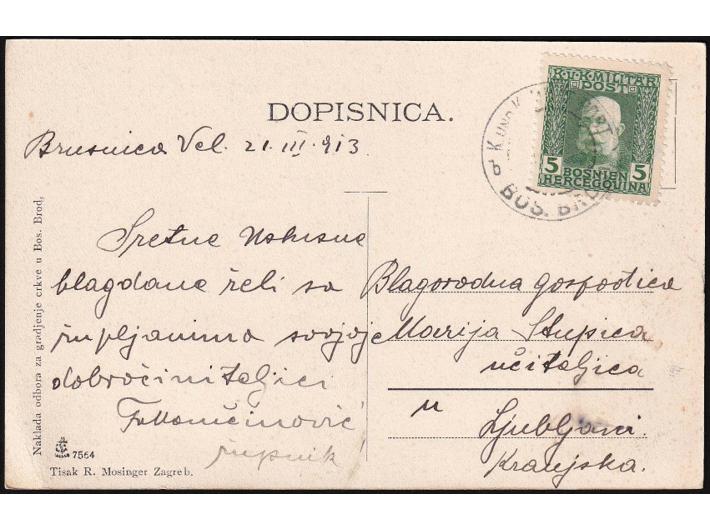 K.U.K. MILITÄR
POST
5 5
BOSNIEN
HERCEGOVINA
BOS. BRO
DOPISNICA.
Brusnica Vel. 21. III. 913
Sretne Uskrsne
blagdane želi sa
župljanima svojoj
dobročiniteljici
župnik
Blagorodna gospodica
Marija Stupica
učiteljica
u
Ljubljani.
Kranjska.
Naklada odbora za gradjenje crkve u Bos. Brod,
7564
Tisak R. Mosinger Zagreb.